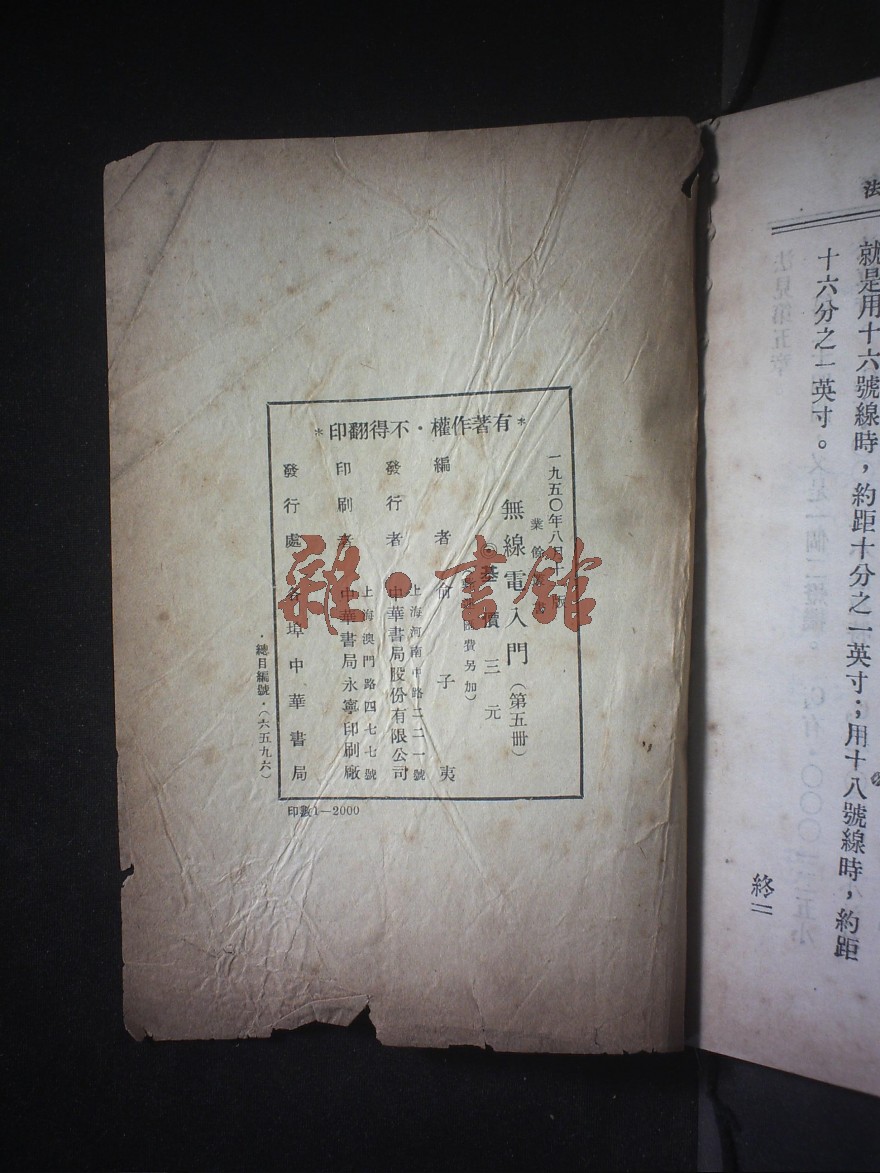 法
就是用十六號線時，約距十分之一英寸；用十八號線時，約距
十六分之一英寸。
終
＊有著作權・不得翻印＊
一九五〇年八月
版
業餘
無線電入門（第五冊）
◎基價三元
費另加）
編者 何子夷
上海河南中路二二一號
發行者 中華書局股份有限公司
上海澳門路四七七號
印刷者 中華書局永寧印刷廠
發行處 各埠中華書局
・總目編號・（六五九六）
印數1—2000
雜・書館